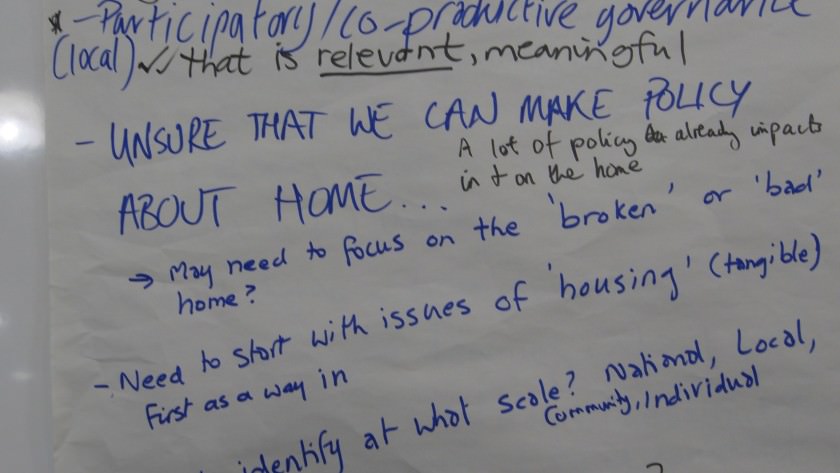 * - Participatory/co-productive governance
(local) ✓✓ that is relevant, meaningful
- UNSURE THAT WE CAN MAKE POLICY
A lot of policy already impacts
in + on the home
ABOUT HOME...
→ May need to focus on the 'broken' or 'bad'
home?
- Need to start with issues of 'housing' (tangible)
first as a way in
identify at what scale? National, Local,
Community, Individual
?